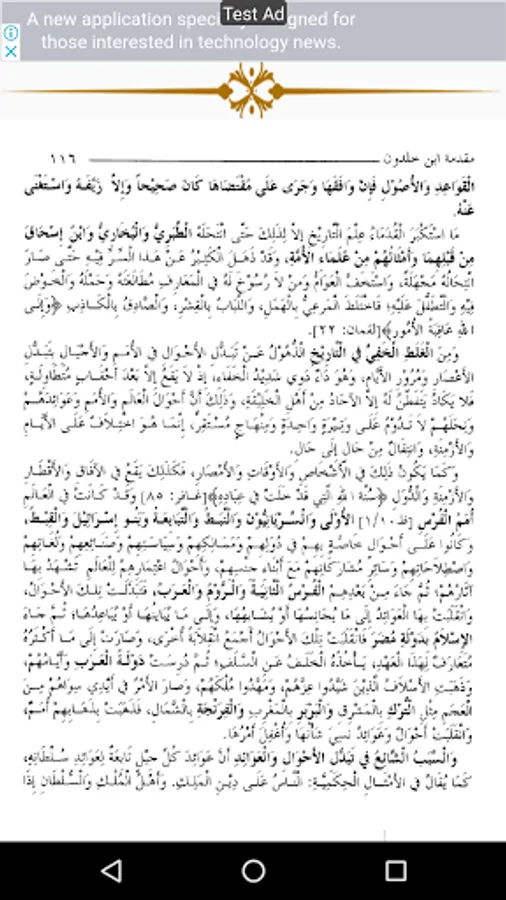 A new application specially designed for
Test Ad
those interested in technology news.
مقدمة ابن خلدون ١١٦
القَوَاعِدِ وَالأُصُوْلِ فَإِنْ وَافَقَهَا وَجَرَى عَلَى مُقْتَضَاهَا كَانَ صَحِيْحاً وَإِلاَّ زَيَّفَهُ وَاسْتَغْنَى
عَنْهُ.
مَا اسْتَكْبَرَ القُدَمَاءُ عِلْمَ التَّارِيْخِ إِلاَّ لِذَلِكَ حَتَّى انْتَحَلَهُ الطَّبَرِيُّ وَالْبُخَارِيُّ وَابْنُ إِسْحَاقَ
مِنْ قَبْلِهِمَا وَأَمْثَالُهُمْ مِنْ عُلَمَاءِ الأُمَّةِ، وَقَدْ ذَهَلَ الكَثِيْرُ عَنْ هَذَا السِّرِّ فِيْهِ حَتَّى صَارَ
انْتِحَالُهُ مَجْهَلَةً، وَاسْتَخَفَّ العَوَامُّ وَمَنْ لاَ رُسُوْخَ لَهُ فِي الْمَعَارِفِ مُطَالَعَتَهُ وَحَمْلَهُ وَالْخَوْضَ
فِيْهِ وَالتَّطَفُّلَ عَلَيْهِ؛ فَاخْتَلَطَ الْمَرْعِيُّ بِالْهَمَلِ، وَاللُّبَابُ بِالْقِشْرِ، وَالصَّادِقُ بِالْكَاذِبِ ﴿وَإِلَى
اللهِ عَاقِبَةُ الأُمُورِ﴾[لقمان: ٢٢].
وَمِنَ الغَلَطِ الْخَفِيِّ فِي التَّارِيْخِ الذُّهُوْلُ عَنْ تَبَدُّلِ الأَحْوَالِ فِي الأُمَمِ وَالأَجْيَالِ بِتَبَدُّلِ
الأَعْصَارِ وَمُرُوْرِ الأَيَّامِ، وَهُوَ دَاءٌ دَوِيٌّ شَدِيْدُ الْخَفَاءِ، إِذْ لاَ يَقَعُ إِلاَّ بَعْدَ أَحْقَابٍ مُتَطَاوِلَةٍ،
فَلاَ يَكَادُ يَتَفَطَّنُ لَهُ إِلاَّ الآحَادُ مِنْ أَهْلِ الْخَلِيْقَةِ، وَذَلِكَ أَنَّ أَحْوَالَ العَالَمِ وَالأُمَمِ وَعَوَائِدَهُمْ
وَنِحَلَهُمْ لاَ تَدُوْمُ عَلَى وَتِيْرَةٍ وَاحِدَةٍ وَمِنْهَاجٍ مُسْتَقِرٍّ، إِنَّمَا هُوَ اخْتِلاَفٌ عَلَى الأَيَّامِ
وَالأَزْمِنَةِ، وَانْتِقَالٌ مِنْ حَالٍ إِلَى حَالٍ.
وَكَمَا يَكُوْنُ ذَلِكَ فِي الأَشْخَاصِ وَالأَوْقَاتِ وَالأَمْصَارِ، فَكَذَلِكَ يَقَعُ فِي الآفَاقِ وَالأَقْطَارِ
وَالأَزْمِنَةِ وَالدُّوَلِ ﴿سُنَّةَ اللهِ الَّتِي قَدْ خَلَتْ فِي عِبَادِهِ﴾[غافر: ٨٥] وَقَدْ كَانَتْ فِي العَالَمِ
أُمَمُ الفُرْسِ [ظ١/١٠] الأُوْلَى وَالسُّرْيَانِيُّوْنَ وَالنَّبَطُ وَالتَّبَابِعَةُ وَبَنُو إِسْرَائِيْلَ وَالقِبْطُ،
وَكَانُوا عَلَى أَحْوَالٍ خَاصَّةٍ بِهِمْ فِي دُوَلِهِمْ وَمَمَالِكِهِمْ وَسِيَاسَتِهِمْ وَصَنَائِعِهِمْ وَلُغَاتِهِمْ
وَاصْطِلاَحَاتِهِمْ وَسَائِرِ مُشَارَكَاتِهِمْ مَعَ أَبْنَاءِ جِنْسِهِمْ، وَأَحْوَالُ اعْتِمَارِهِمْ لِلْعَالَمِ تَشْهَدُ بِهَا
آثَارُهُمْ، ثُمَّ جَاءَ مِنْ بَعْدِهِمُ الفُرْسُ الثَّانِيَةُ وَالرُّوْمُ وَالعَرَبُ، فَتَبَدَّلَتْ تِلْكَ الأَحْوَالُ،
وَانْقَلَبَتْ بِهَا العَوَائِدُ إِلَى مَا يُجَانِسُهَا أَوْ يُشَابِهُهَا، وَإِلَى مَا يُبَايِنُهَا أَوْ يُبَاعِدُهَا؛ ثُمَّ جَاءَ
الإِسْلاَمُ بِدَوْلَةِ مُضَرَ فَانْقَلَبَتْ تِلْكَ الأَحْوَالُ أَجْمَعُ انْقِلاَبَةً أُخْرَى، وَصَارَتْ إِلَى مَا أَكْثَرُهُ
مُتَعَارَفٌ لِهَذَا العَهْدِ، يَأْخُذُهُ الْخَلَفُ عَنِ السَّلَفِ؛ ثُمَّ دُرِسَتْ دَوْلَةُ العَرَبِ وَأَيَّامُهُمْ،
وَذَهَبَتِ الأَسْلاَفُ الَّذِيْنَ شَيَّدُوا عِزَّهُمْ، وَمَهَّدُوا مُلْكَهُمْ، وَصَارَ الأَمْرُ فِي أَيْدِي سِوَاهُمْ مِنَ
العَجَمِ مِثْلِ التُّرْكِ بِالْمَشْرِقِ وَالبَرْبَرِ بِالْمَغْرِبِ وَالفِرَنْجَةِ بِالشَّمَالِ، فَذَهَبَتْ بِذَهَابِهِمْ أُمَمٌ،
وَانْقَلَبَتْ أَحْوَالٌ وَعَوَائِدُ نُسِيَ شَأْنُهَا وَأُغْفِلَ أَمْرُهَا.
وَالسَّبَبُ الشَّائِعُ فِي تَبَدُّلِ الأَحْوَالِ وَالعَوَائِدِ أَنَّ عَوَائِدَ كُلِّ جِيْلٍ تَابِعَةٌ لِعَوَائِدِ سُلْطَانِهِ،
كَمَا يُقَالُ فِي الأَمْثَالِ الْحِكَمِيَّةِ: النَّاسُ عَلَى دِيْنِ الْمَلِكِ. وَأَهْلُ الْمُلْكِ وَالسُّلْطَانِ إِذَا